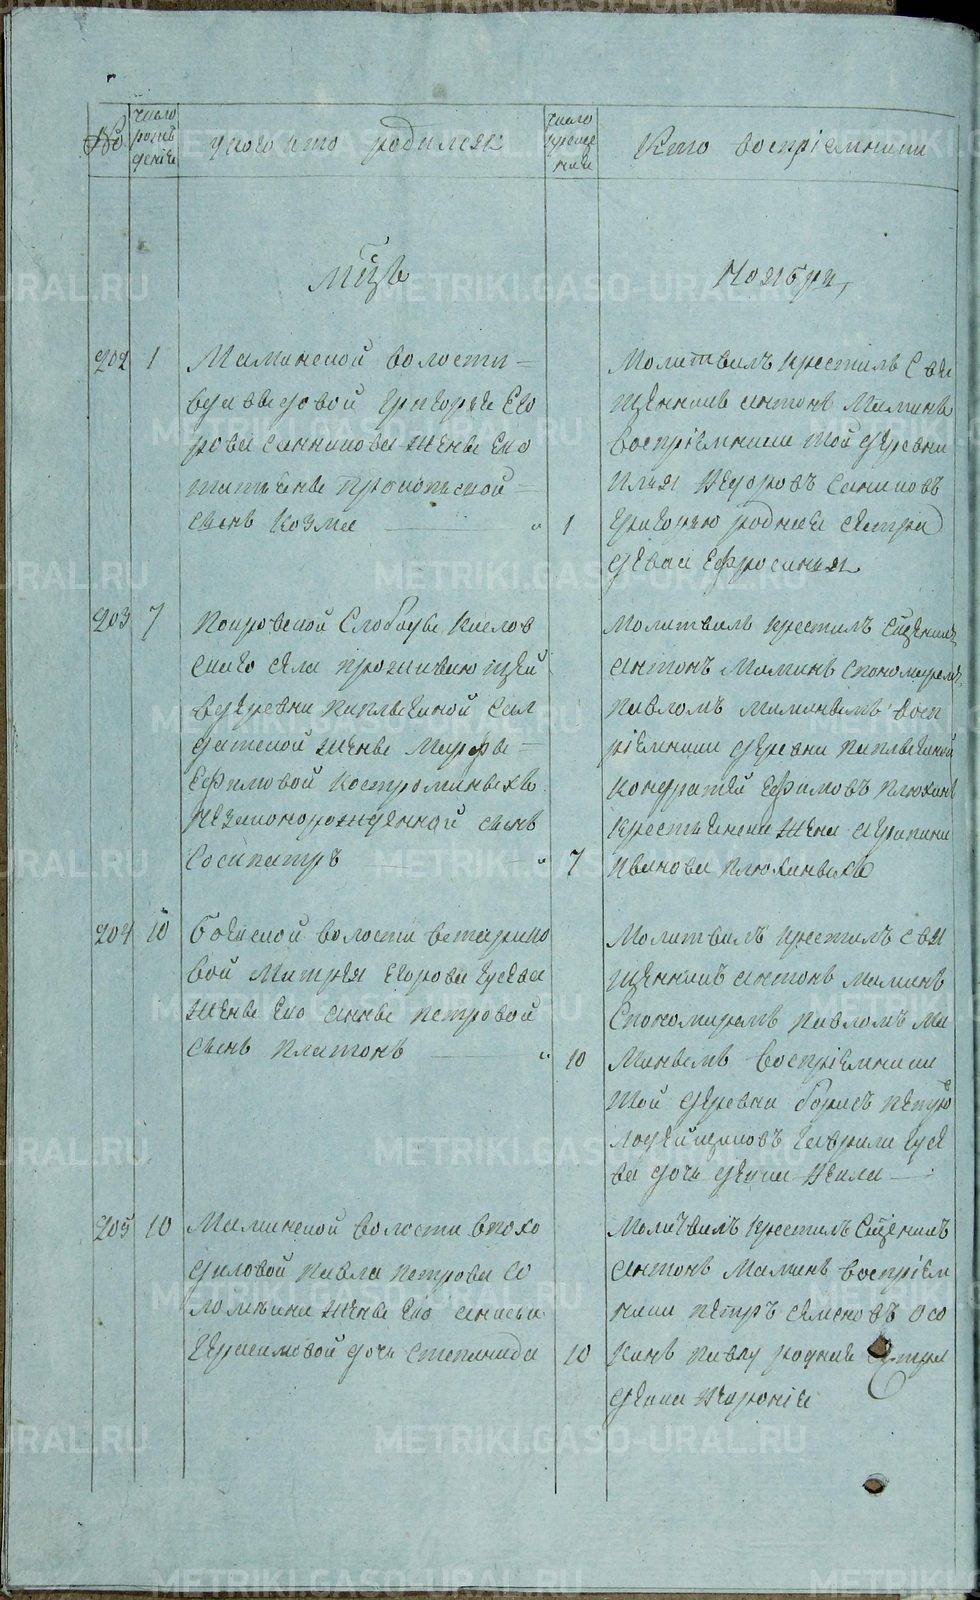 №
число рождения
у кого кто родился
число крещения
Кто восприемники
мць
Ноября,
202
1
Маминской волости
в Давыдовой Григорья Его
рова Санникова жены его
татьяны Прокопьевой
сынъ Козма
1
Молитвилъ крестилъ Свя
щенникъ антонъ Маминъ
Воспріемники той деревни
Илья Федоровъ Саниковъ
Григорью родная сестра
девка Ефросинья
203
7
Покровской Слободы Кислов
скаго села проживающей
в деревни Каплыгиной Сол
датской жены Марфы
Ефимовой Костроминыхъ
незаконорожденной сынъ
Сосипатръ
7
Молитвилъ крестилъ Сщенникъ
антонъ Маминъ Спономаремъ
Павломъ Маминымъ восп
ріемники деревни
Кондратей Ефимовъ Плюхинъ
крестьянска жена агрипина
Иванова Плюхиныхъ
204
10
волости
вой Митрея Егорова Гусева
жены его анны петровой
сынъ платонъ
10
Молитвилъ крестилъ свя
щенникъ антонъ маминъ
Спономаремъ павломъ Ма
минымъ воспріемники
той деревни борисъ
Гаврила Гусе
ва дочь девка
205
10
Маминской волости
павла петрова
жены его анисьи
Герасимовой дочь степанида
10
Молитвилъ крестилъ Сщенникъ
антонъ Маминъ воспріем
ники петръ семеновъ Осо
кинъ павлу родная сестра
девка Февронія
METRIKI.GASO-URAL.RU